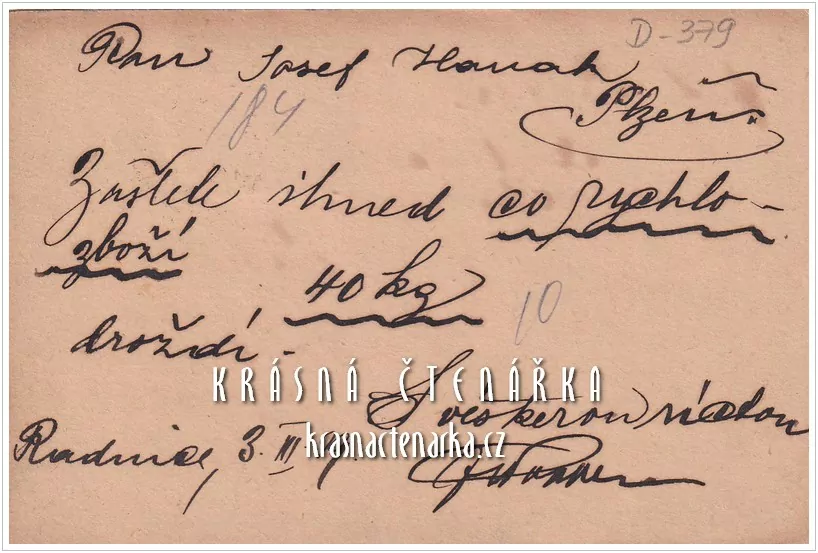 D-379
Pan Josef Hanak
Plzeň.
184
Zašlete ihned co rychlo-
zboží
40 kg
10
droždí -
KRÁSNÁ ČTENÁŘKA
S veškerou úctou
Radnice, 3. III
krasnactenarka.cz